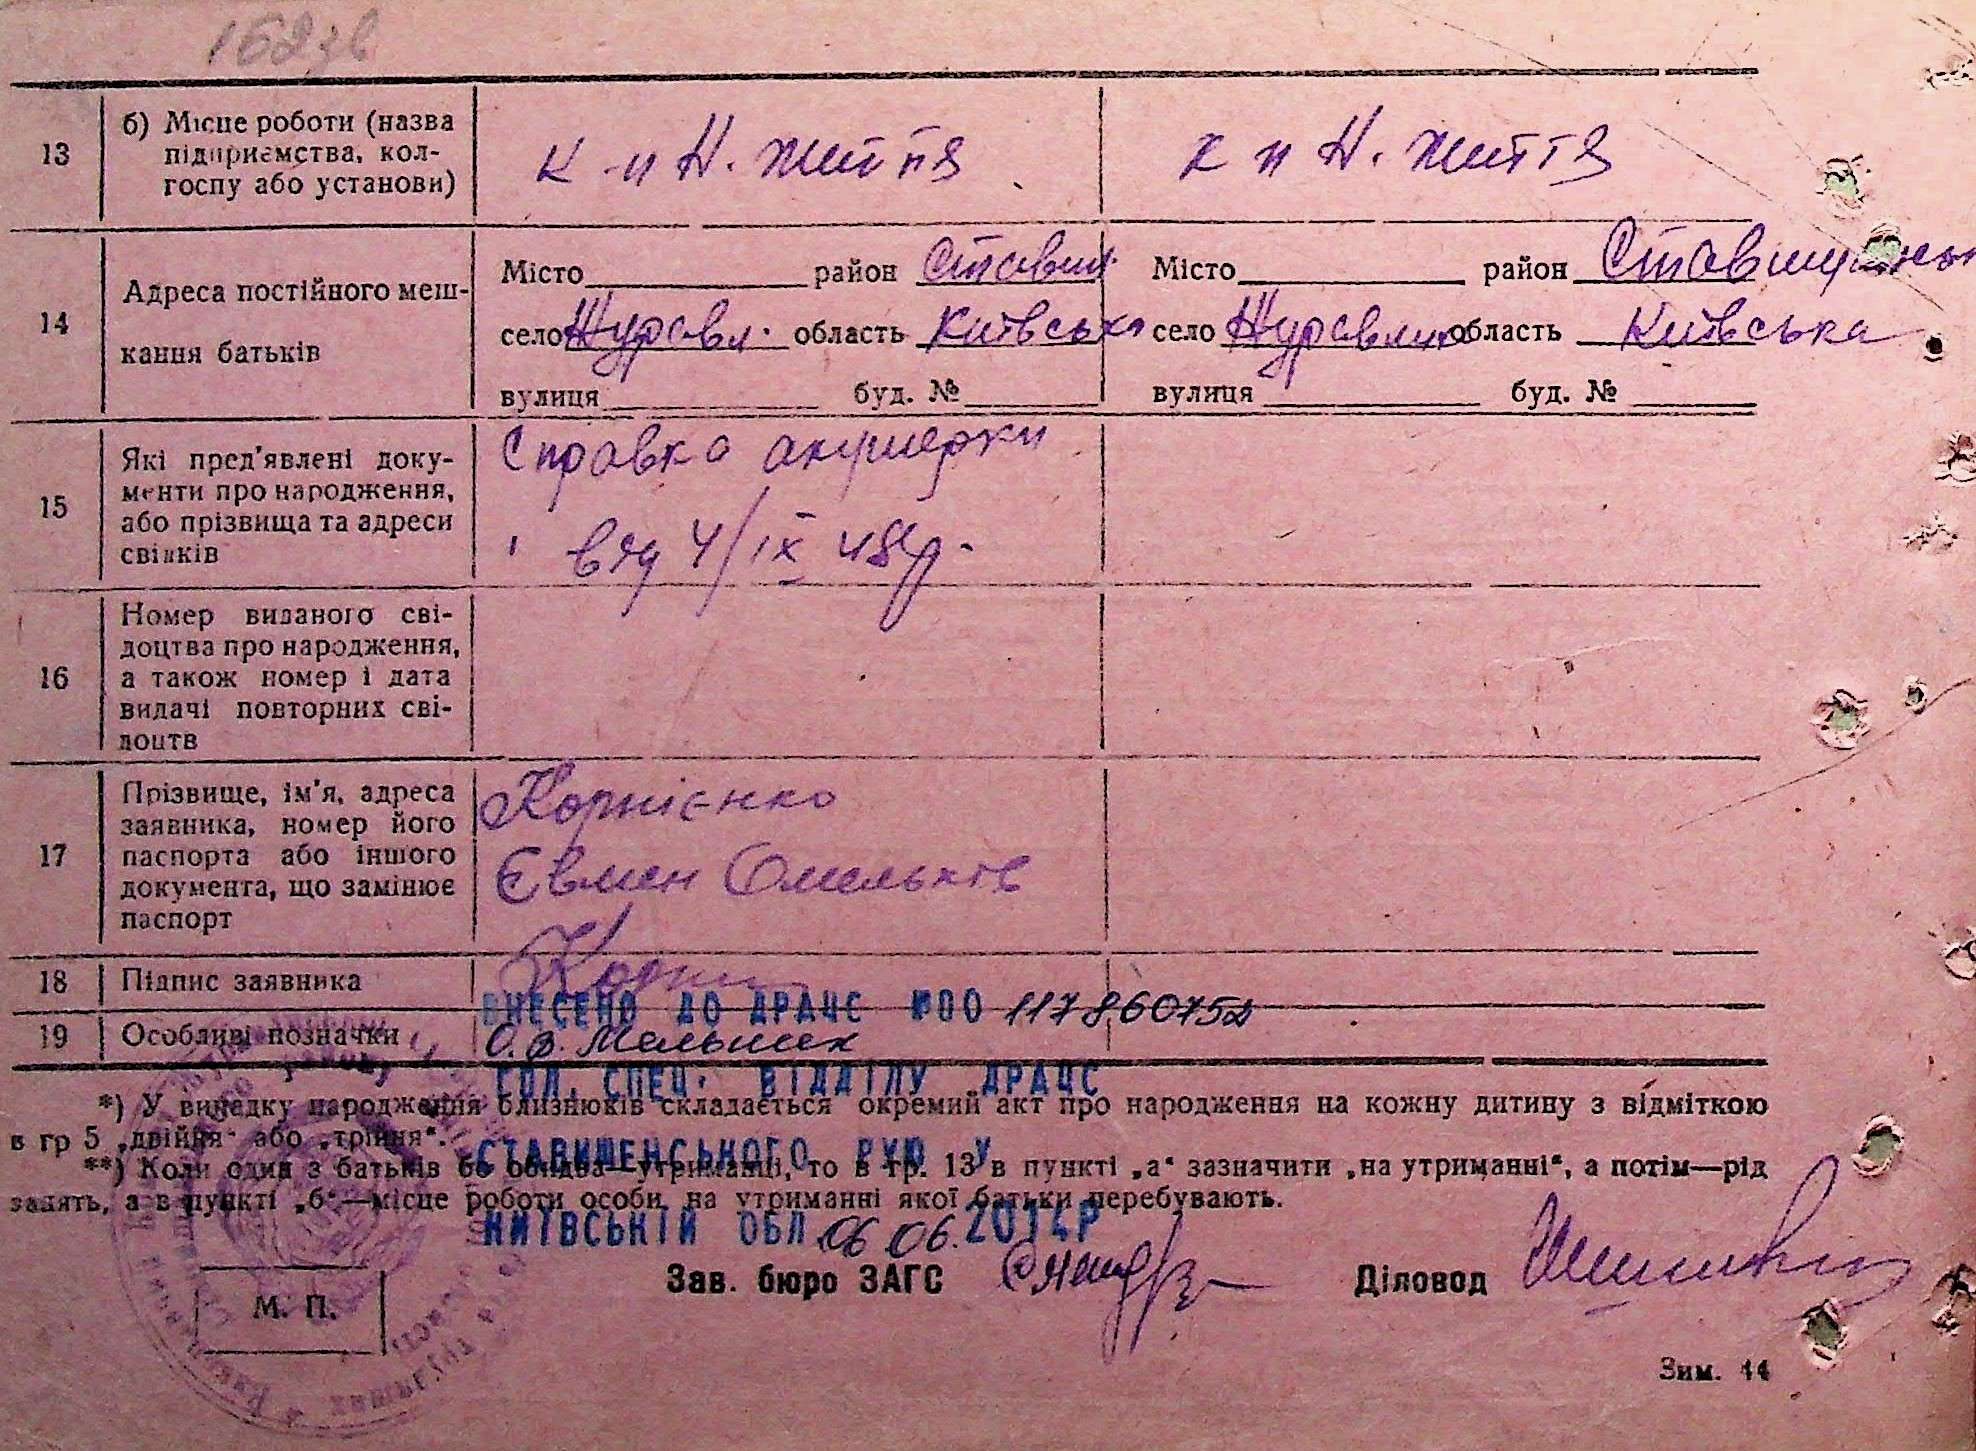 162 зв
13 б) Місце роботи (назва
підприємства, кол-
госпу або установи)
к-п Н. життя
к п Н. життя
14 Адреса постійного меш-
кання батьків
Місто район Ставищ.
село Журавл. область Київська
вулиця буд. №
Місто район Ставищенськ
село область Київська
вулиця буд. №
15 Які пред'явлені доку-
менти про народження,
або прізвища та адреси
свідків
Справка акушерки
від 4/IX 48 р.
16 Номер виданого сві-
доцтва про народження,
а також номер і дата
видачі повторних сві-
доцтв
17 Прізвище, ім'я, адреса
заявника, номер його
паспорта або іншого
документа, що замінює
паспорт
Корнієнко
Євмен Омельків
18 Підпис заявника
ВНЕСЕНО ДО ДРАЦС №00 117860752
19 Особливі позначки
О.В. Мельник
ГОЛ. СПЕЦ. ВІДДІЛУ ДРАЦС
*) У випадку народження близнюків складається окремий акт про народження на кожну дитину з відміткою
в гр 5 „двійня" або „трійня".
СТАВИЩЕНСЬКОГО РУЮ У
**) Коли один з батьків бо обидва—утриманці, то в гр. 13 в пункті „а" зазначити „на утриманні", а потім—рід
занять, а в пункті „б"—місце роботи особи, на утриманні якої батьки перебувають.
КИЇВСЬКІЙ ОБЛ 06 06. 2014Р
Зав. бюро ЗАГС
Діловод
М. П.
Зим. 44